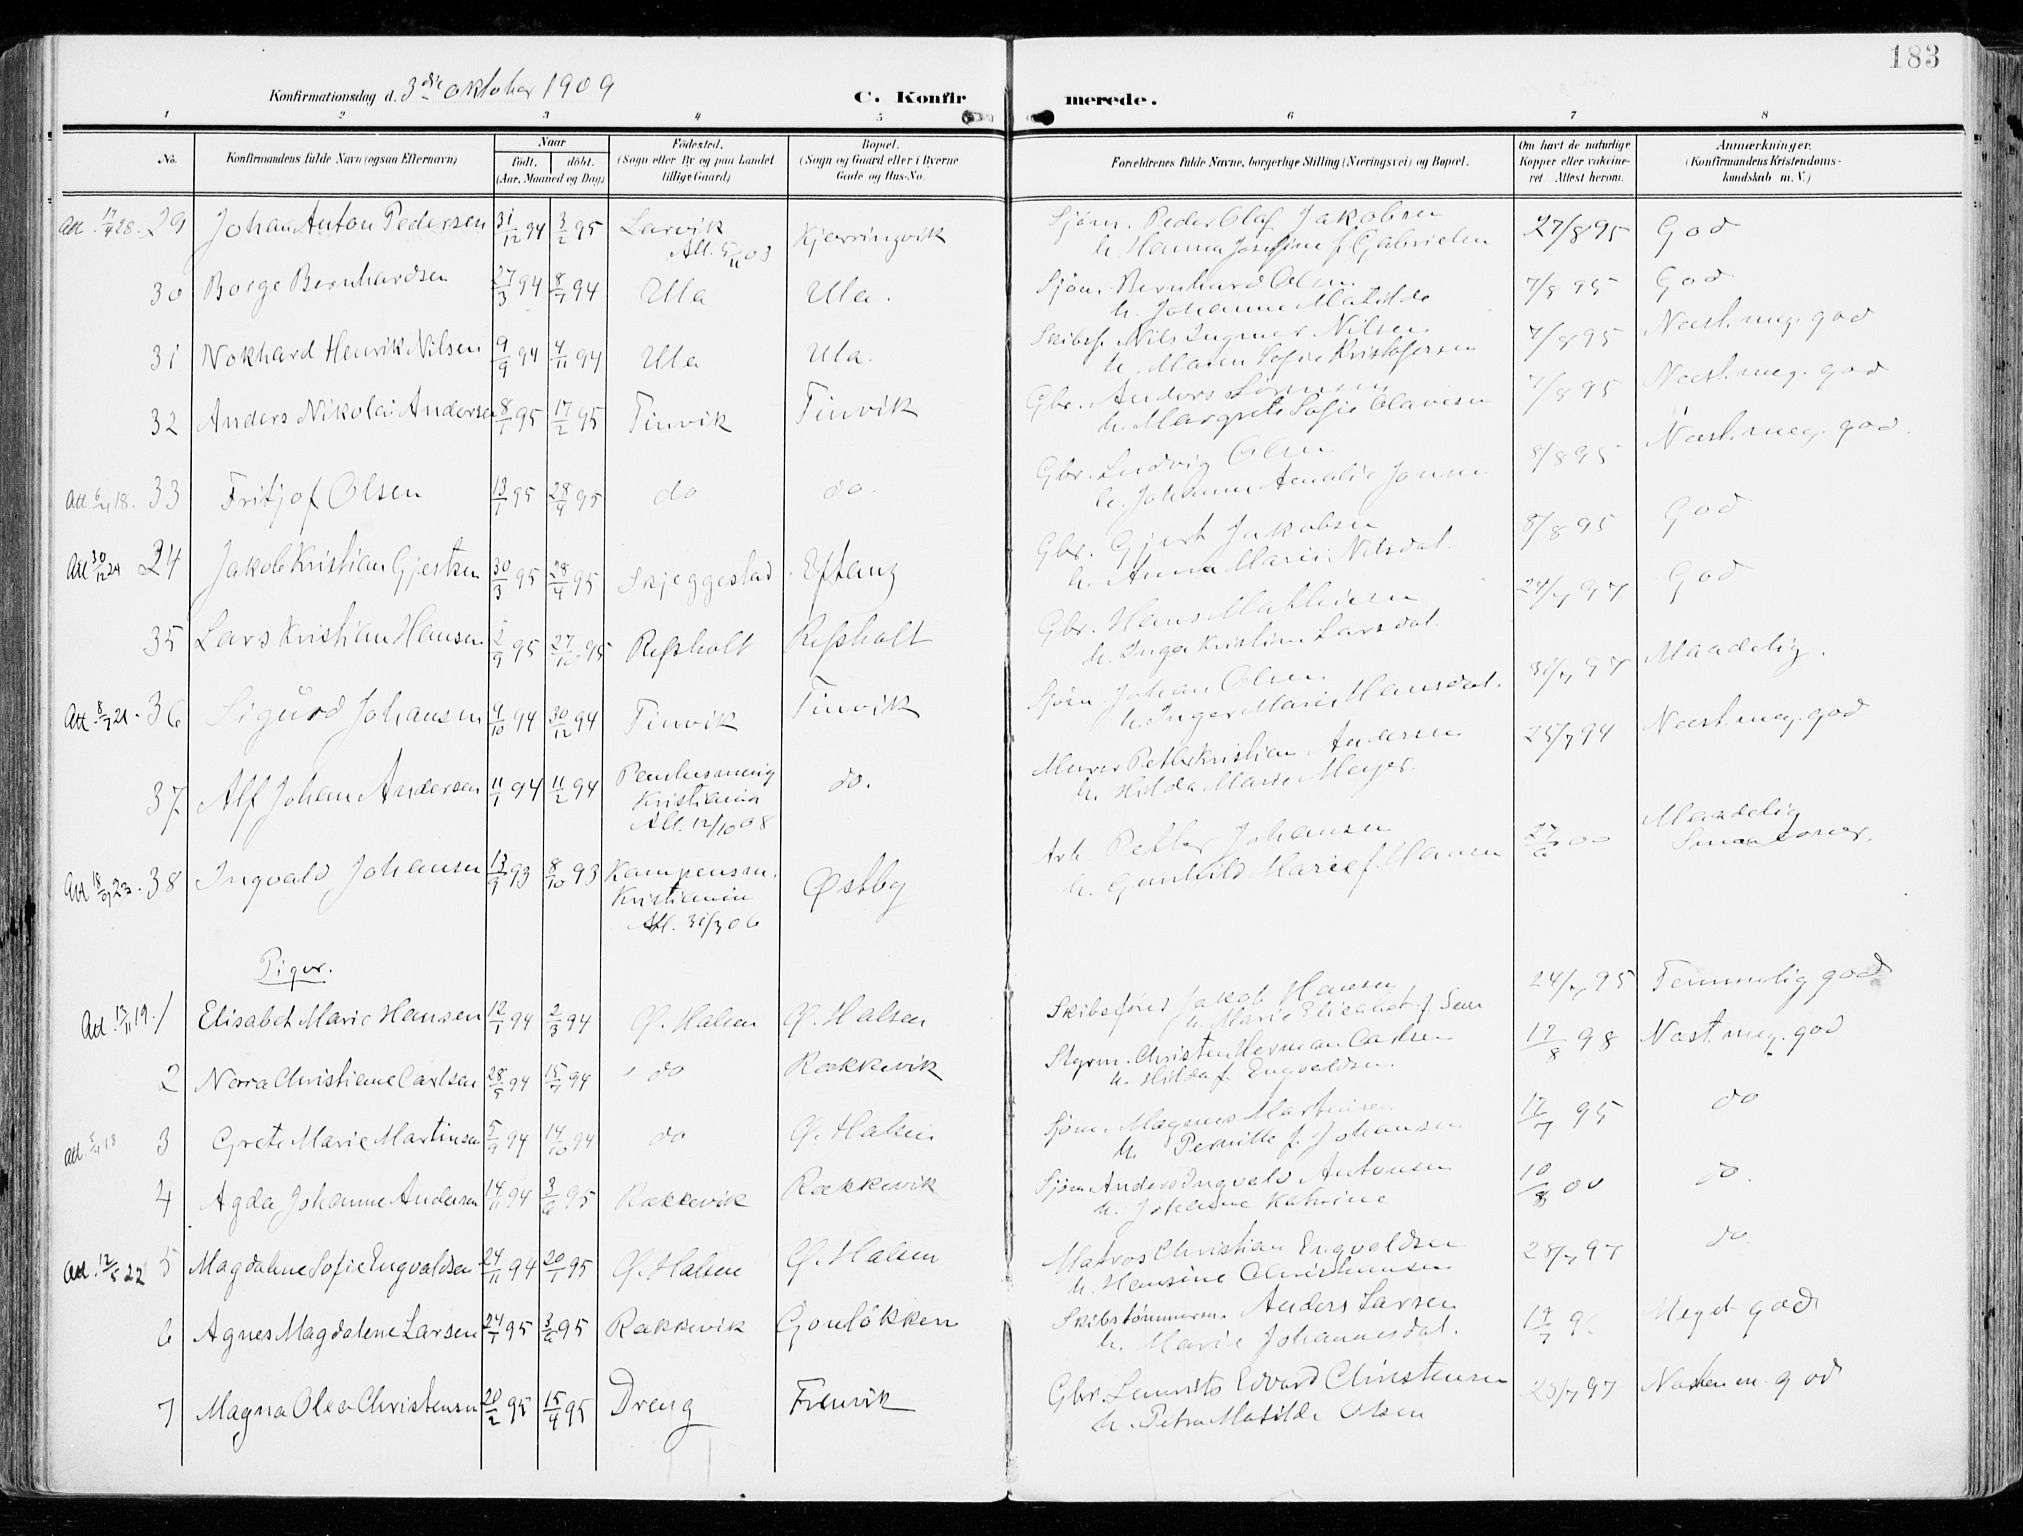 183
Konfirmationsdag d. 3die oktober 1909
C. Konfirmerede.
1 2 3 4 5 6 7 8
No. Konfirmandens fulde Navn (ogsaa Efternavn) Naar født. døbt. (Aar, Maaned og Dag) Fødested. (Sogn eller By og paa Landet tillige Gaard) Bopæl. (Sogn og Gaard eller i Byerne Gade og Hus-No. Forældrenes fulde Navne, borgerlige Stilling (Næringsvei) og Bopæl. Om havt de naturlige Kopper eller vakcineret. Attest herom. Anmærkninger. (Konfirmandens Kristendomskundskab m. V.)
Att. 17/4 28. 29 Johan Anton Pedersen 31/12 94 3/2 95 Larvik Att. 5/11 03 Kjerringvik Sjøm. Peder Olaf Jakobsen h. Hanna Josefine f. Gabrielsen 27/8 95 God
30 Borge Bernhardsen 27/3 94 8/7 94 Ula Ula. Sjøm. Bernhard Olsen h. Johanne Matilde 7/8 95 God
31 Nokhard Henrik Nilsen 9/9 94 4/11 94 Ula Ula. Skibsf. Nils Ingmar Nilsen h. Maren Sofie Kristofersen 7/8 95 Næst. meg. god
32 Anders Nikolai Andersen 8/1 95 17/2 95 Tinvik Tinvik Gbr. Anders Sørensen h. Margrete Sofie Olavesen 7/8 95 Næst. meg. god
Att. 6/4 18. 33 Fritjof Olsen 13/1 95 28/4 95 do do. Gbr. Ludvig Olsen h. Johanne Amalie Jonsen 8/8 95 Næst. meg. god.
Att 30/12 24 34 Jakob Kristian Gjertsen 30/3 95 28/4 95 Skjeggestad Eftang Gbr. Gjert Jakobsen h. Anna Marie Nilsdat. 8/8 95 God
35 Lars Kristian Hansen 2/9 95 27/10 95 Refsholt Refsholt Gbr. Hans Mathisen h. Inga Kristine Larsdat. 24/7 97 God
Att. 8/7 21. 36 Sigurd Johansen 4/10 94 30/12 94 Tinvik Tinvik Sjøm. Johan Olsen h. Inger Marie Hansdat. 31/7 97 Maadelig.
37. Alf Johan Andersen 11/1 94 11/2 94 Paulusmenig Kristiania Att. 12/10 08 do. Murer Peth. Kristian Andersen h. Hilda Marie Meyer. 25/7 94 Næst. meg. god
Att 18/7 23. 38 Ingvald Johansen 13/9 93 8/10 93 Kampensm. Kristiania Att. 31/7 06 Østby Arb. Petter Johansen h. Gunhild Marie f. Hansen 27/6 00 Maadelig
Piger.
Att. 13/11 19. 1 Elisabet Marie Hansen 12/1 94 2/3 94 Ø. Halsen Ø. Halsen Skibsfører Jakob Hansen h. Marie Elisabet f. 24/7 95 Temmelig god
2 Norra Christiane Carlsen 28/5 94 15/7 94 do Rakkevik Styrm. Christen Herman Carlsen h. Hilda f. Engvaldsen. 17/8 98 Næst. meg. god
Att. 5/4 18 3 Grete Marie Martinsen 5/9 94 14/10 94 do Ø. Halsen Sjøm. Magnus Martinsen h. Pernille f. Johansen 17/7 95 do
4 Agda Johanne Andersen 14/11 94 3/6 95 Rakkevik Rakkevik Sjøm. Anders Ingvald Antonsen h. Johanne Katrine 10/8 00 do.
Att. 12/5 22 5 Magdalene Sofie Engvaldsen 24/11 94 20/1 95 Ø. Halsen Ø. Halsen Matros Christian Engvaldsen h. Hansine Christiansen 28/7 97 do.
6 Agnes Magdalene Larsen 24/1 95 3/6 95 Rakkevik Gonløkken Skibstømmerm. Anders Larsen h. Marie Johannesdat. Meget god
7 Magna Olea Christensen 20/2 95 15/4 95 Dreng Frenvik Gbr. Laurits Edvard Christensen h. Petra Matilde Olsen 23/7 97 Næsten m. god